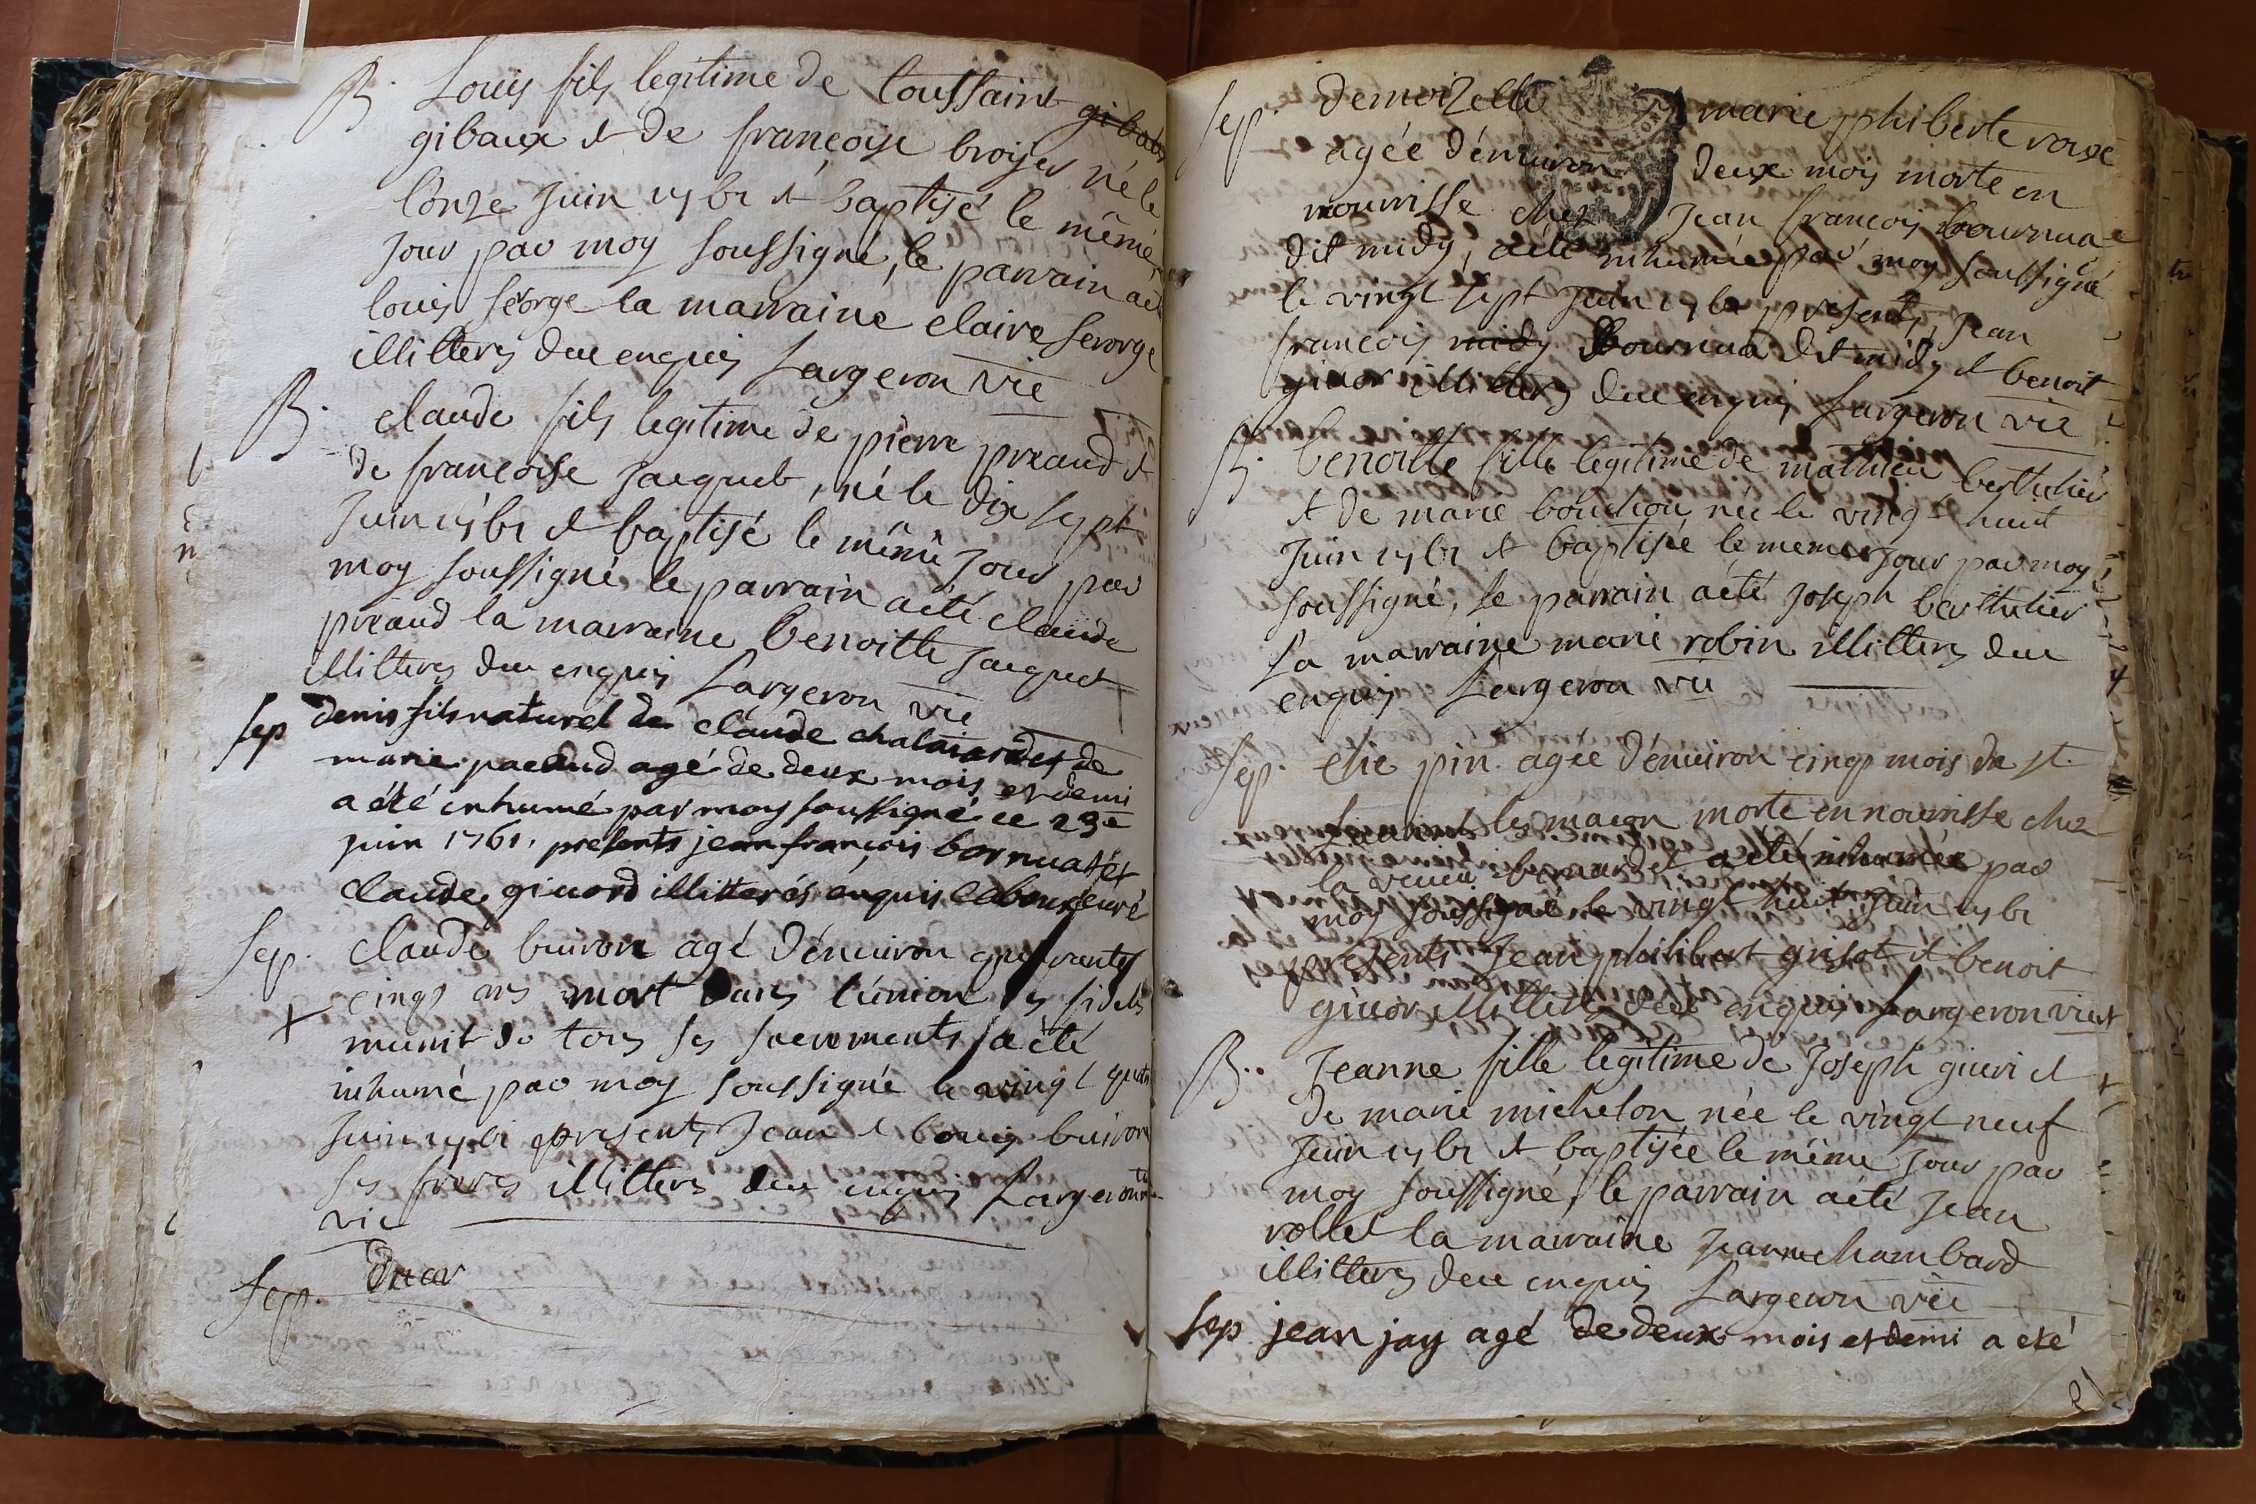 B. Louis fils legitime de toussaint gibaux
gibaux et de françoise broyer né le
l'onze juin 1761 et baptisé le même
jour par moy soussigné, le parrain a été
louis george la marraine claire George
illitterés due enquis Largeron vic
B. claude fils legitime de pierre preaud et
de françoise jacquet, né le dix sept
juin 1761 et baptisé le même jour par
moy soussigné le parrain a été claude
preaud la marraine benoitte jacquet
illitterés due enquis Largeron vic
sep denis fils naturel de claude chalaiardet de
marie paccaud agé de deux mois et demi
a été inhumé par moy soussigné ce 23e
juin 1761. presents jean françois bornuat et
claude givord illitterés enquis curé
sep. claude buiron agé d'enuiron quarante
cinq ans mort dans l'union des fideles
munit de tous ses sacrements a été
inhumé par moy soussigné le vingt quatre
juin 1761 presents Jean et Louis buiron
ses freres illitterés due enquis Largeron
vic
sep.
sep. demoizelle marie phiberte roux
agée d'enuiron deux mois morte en
nourrisse chez Jean françois bournua
dit midy, a été inhumée par moy soussigné
le vingt sept juin 1761 presents, Jean
françois midy Bournua dit midy et benoit
givor illitterés due enquis Largeron vic
B. benoitte fille legitime de mathieu berthelier
et de marie bouchou née le vingt huit
juin 1761 et baptisée le meme jour par moy
soussigné, le parrain a été joseph berthelier
la marraine marie robin illitterés due
enquis Largeron vic
sep. elie pin agée d'enuiron cinq mois de st.
Laurent les macon morte en nourrisse chez
la veuve a été inhumée par
moy soussigné le vingt huit juin 1761
presents Jean philibert grisot et benoit
givor illitterés due enquis Largeron vic
B.. Jeanne fille legitime de Joseph giveri et
de marie michelon née le vingt neuf
juin 1761 et baptisée le même jour par
moy soussigné, le parrain a été Jean
vollet la marraine Jeanne chambard
illitterés due enquis Largeron vic
sep jean jay agé de deux mois et demi a été